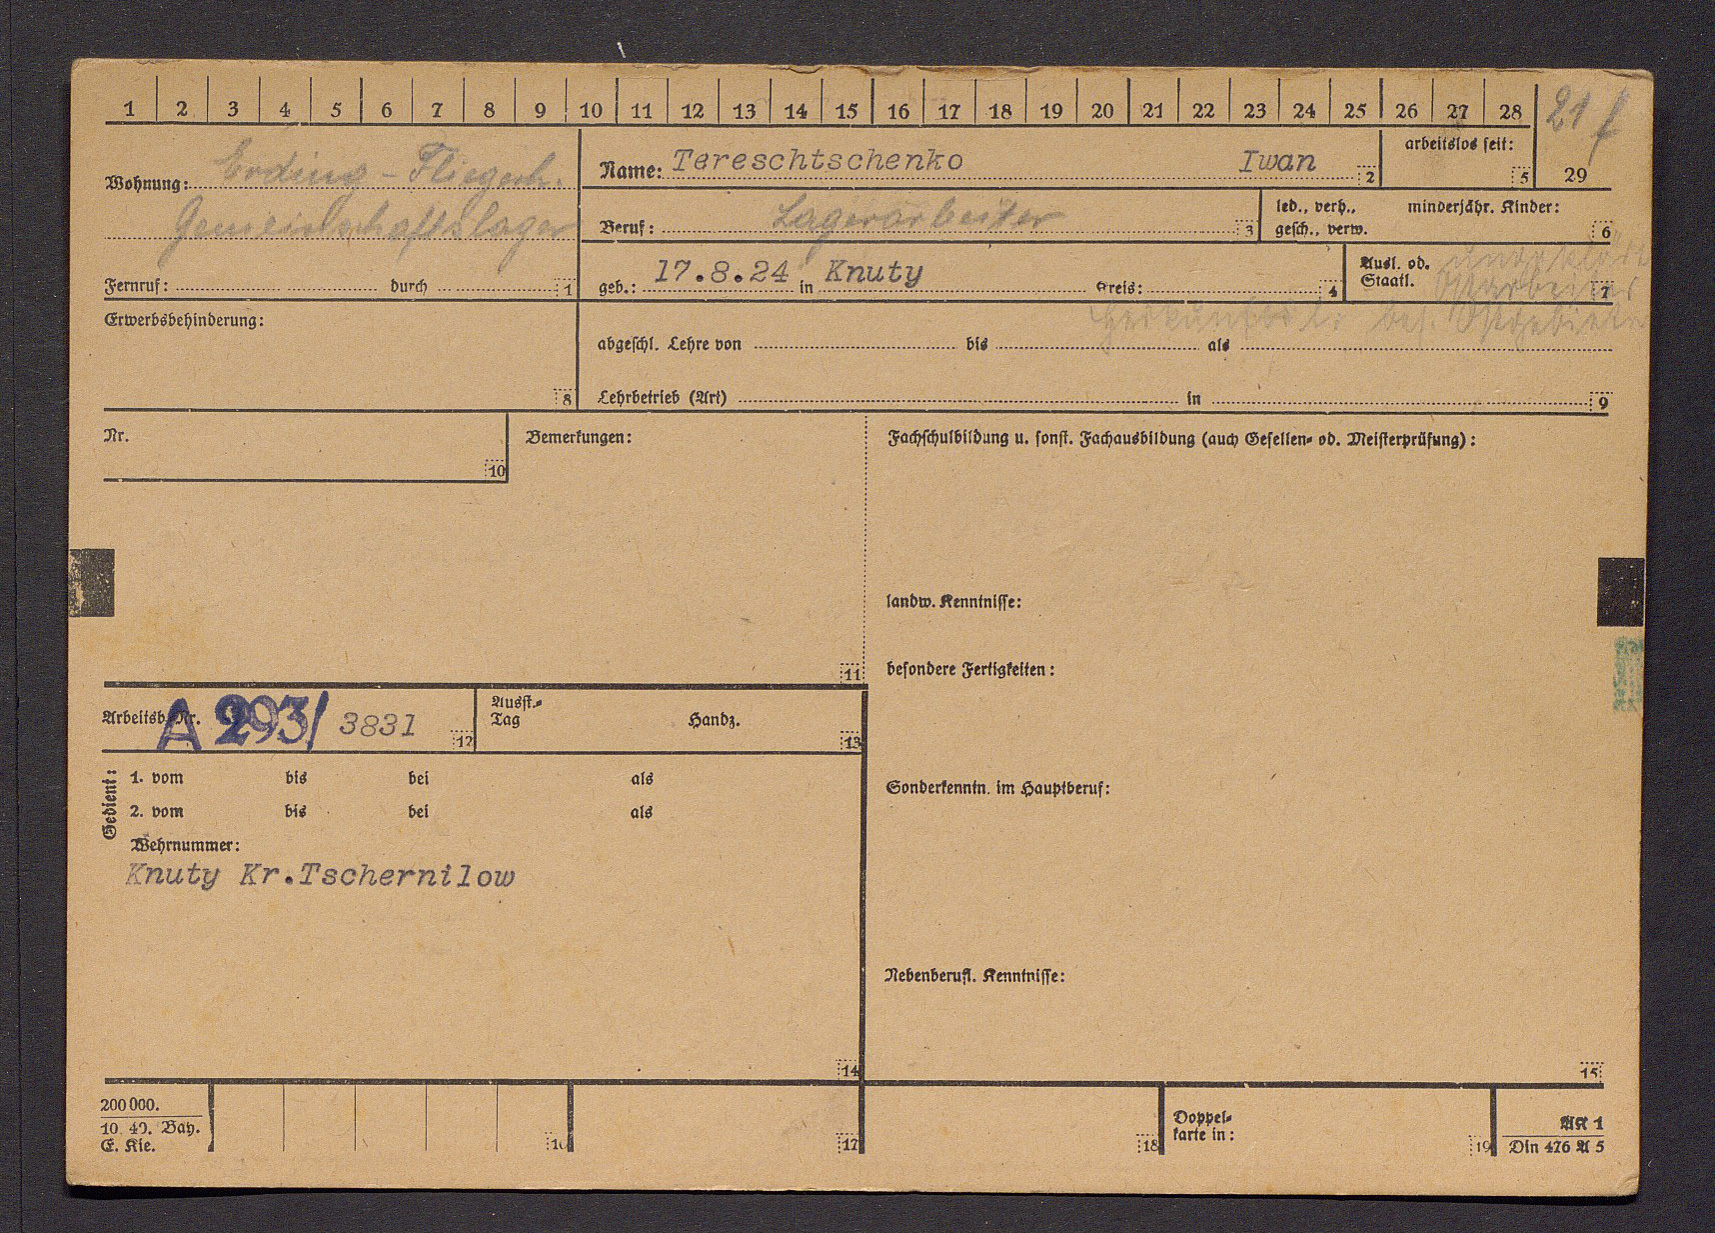 1 2 3 4 5 6 7 8 9 10 11 12 13 14 15 16 17 18 19 20 21 22 23 24 25 26 27 28
21 f
29
Wohnung: Erding - Fliegerh.
Gemeinschaftslager
Fernruf: durch 1
Name: Tereschtschenko Iwan 2
arbeitslos seit: 5
Beruf: Lagerarbeiter 3
led., verh., minderjähr. Kinder:
gesch., verw. 6
geb.: 17.8.24 in Knuty Kreis: 4
Ausl. od. ungeklärt
Staatl. Ostarbeiter 7
bes. Ostgebiete
Erwerbsbehinderung:
8
abgeschl. Lehre von bis als
Lehrbetrieb (Art) in 9
Nr.
10
Bemerkungen:
11
Fachschulbildung u. sonst. Fachausbildung (auch Gesellen- od. Meisterprüfung):
landw. Kenntnisse:
besondere Fertigkeiten:
Arbeitsb. Nr. A 293/ 3831 12
Ausst.-
Tag Handz. 13
Gedient:
1. vom bis bei als
2. vom bis bei als
Wehrnummer:
Knuty Kr.Tschernilow
14
Sonderkenntn. im Hauptberuf:
Nebenberufl. Kenntnisse:
15
200000.
10. 40. Bay.
E. Kie.
16
17
18
Doppel-
karte in:
19
AK 1
Din 476 A 5